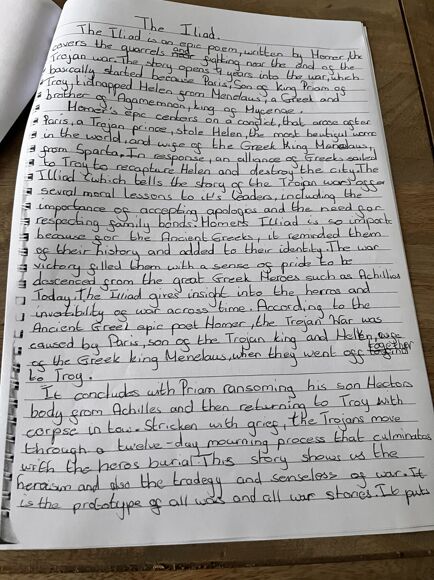 The Iliad.
The Iliad is an epic poem, written by Homer, the
covers the quarrels and fighting near the end of the
Trojan war. The story opens 9 years into the war, which
basically started because Paris, son of king Priam of
Troy, kidnapped Helen from Menelaus, a Greek and
brother of Agamemnon, king of Mycenae.
Homer's epic centers on a conflict, that arose after
Paris, a Trojan prince, stole Helen, the most beutiful
in the world, and wife of the Greek King Menelaus,
from Sparta. In response, an alliance of Greeks sailed
to Troy to recapture Helen and destroy the city. The
Illiad (which tells the story of the Trojan war) offer
sevral moral lessons to it's leaders, including the
importance of accepting apologies and the need for
respecting family bonds. Homers Illiad is so importc
because for the Ancient Greeks, it reminded them
of their history and added to their identity. The war
victory filled them with a sense of pride to be
dascenced from the great Greek Heroes such as Achillios
Today. The Iliad gives insight into the herros and
of war across time. According to the
Ancient Greel epic poet Homer, the Trojan War was
caused by Paris, son of the Trojan king and Hellen, wife
of the Greek king Menelaus, when they went off together
to Troy.
It concludes with Priam ransoming his son Hectors
body from Achilles and then returning to Troy with
corpse in tow. Stricken with grief, the Trojans move
through a twelve-day mourning process that culminatos
with the heros burial. This story shows us the
heroism and also the tradegy and senseless of war. It
is the prototype of all wars and all war stories. It puts